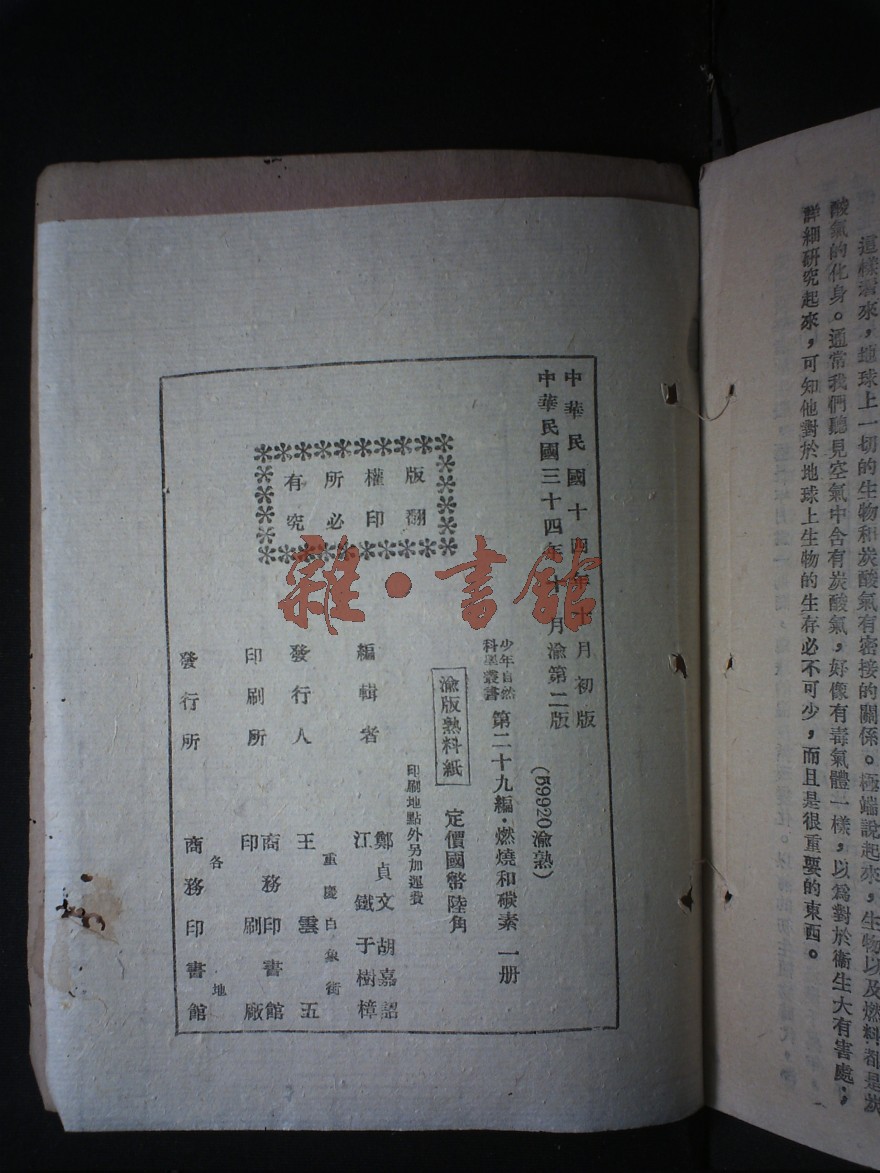 這樣看來，地球上一切的生物和炭酸氣有密接的關係。極端說起來，生物以及燃料都是炭
酸氣的化身。通常我們聽見空氣中含有炭酸氣，好像有毒氣體一樣，以爲對於衞生大有害處；
詳細研究起來，可知他對於地球上生物的生存必不可少，而且是很重要的東西。
中華民國十四年十月初版
中華民國三十四年十月渝第二版
(59920渝熟)
少年自然
科學叢書
第二十九編·燃燒和碳素 一册
渝版熟料紙
定價國幣陸角
印刷地點外另加運費
版權所有
翻印必究
編輯者
鄭貞文 胡嘉詔
江鐵 于樹樟
發行人
重慶白象街
王雲五
印刷所
商務印書館
印刷廠
發行所
各地
商務印書館
雜·書館